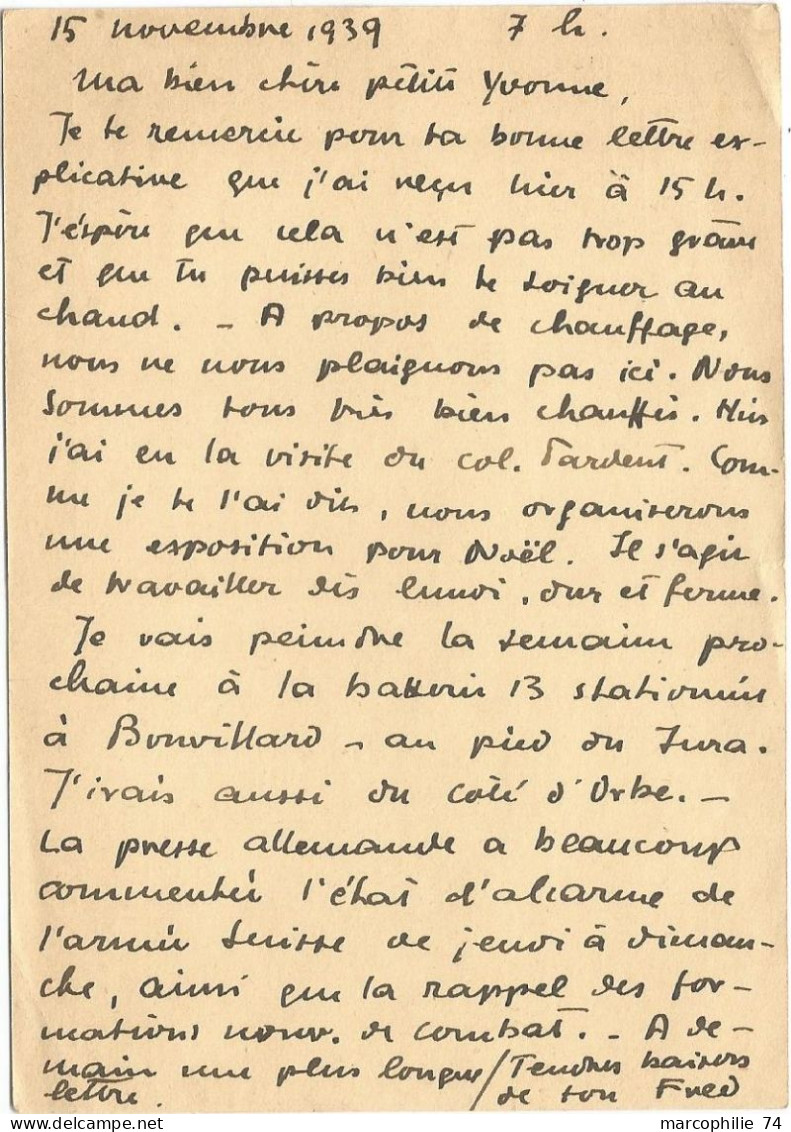 15 novembre 1939 7 h.
Ma bien chère petite Yvonne,
Je te remercie pour ta bonne lettre ex-
plicative que j'ai reçu hier à 15 h.
J'éspère que cela n'est pas trop grave
et que tu puisses bien te soigner au
chaud. - A propos de chauffage,
nous ne nous plaignons pas ici. Nous
sommes tous très bien chauffés. Hier
j'ai eu la visite du col. Tardent. Com-
me je te l'ai dis, nous organiserons
une exposition pour Noël. Il s'agit
de travailler dès lundi, dur et ferme.
Je vais peindre la semaine pro-
chaine à la batterie 13 stationnée
à Bonvillard - au pied du Jura.
J'irais aussi du coté d'Orbe. -
La presse allemande a beaucoup
commentée l'état d'alcarme de
l'armée suisse de jeudi à diman-
che, ainsi que la rappel des for-
mations nouv. de combat. - A de-
main une plus longue / Tendres baisers
lettre. de ton Fred
marcophilie 74